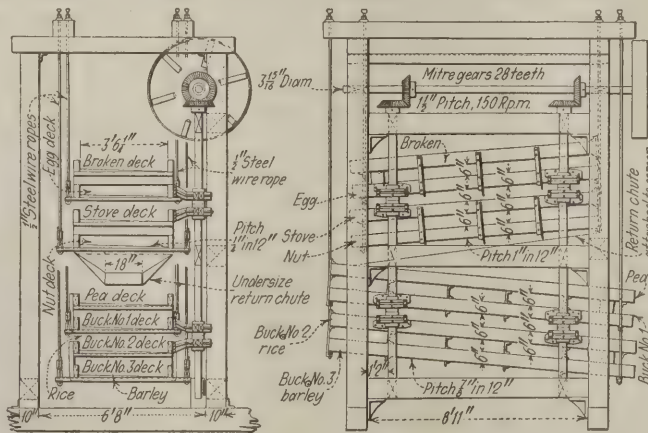 ½" Steel wire ropes
Egg deck
3'6¼"
Broken deck
Stove deck
½" Steel
wire rope
Pitch
in 12"
Nut deck
18"
Undersize
return chute
Pea deck
Buck No.1 deck
Buck No. 2 deck
Buck No. 3 deck
Rice
Barley
10"
6'8"
10"
3 15/16" Diam.
Mitre gears 28 teeth
1½" Pitch, 150 R.p.m.
Broken
Egg
Stove
Nut
6" 6" 6"
6" 6" 6"
Pitch 1" in 12"
Return chute
Pea
Buck No. 1
Buck No. 2
rice
6" 6" 6"
6" 6" 6"
Buck No. 3
barley
1'2"
Pitch ⅞" in 12"
8'11"